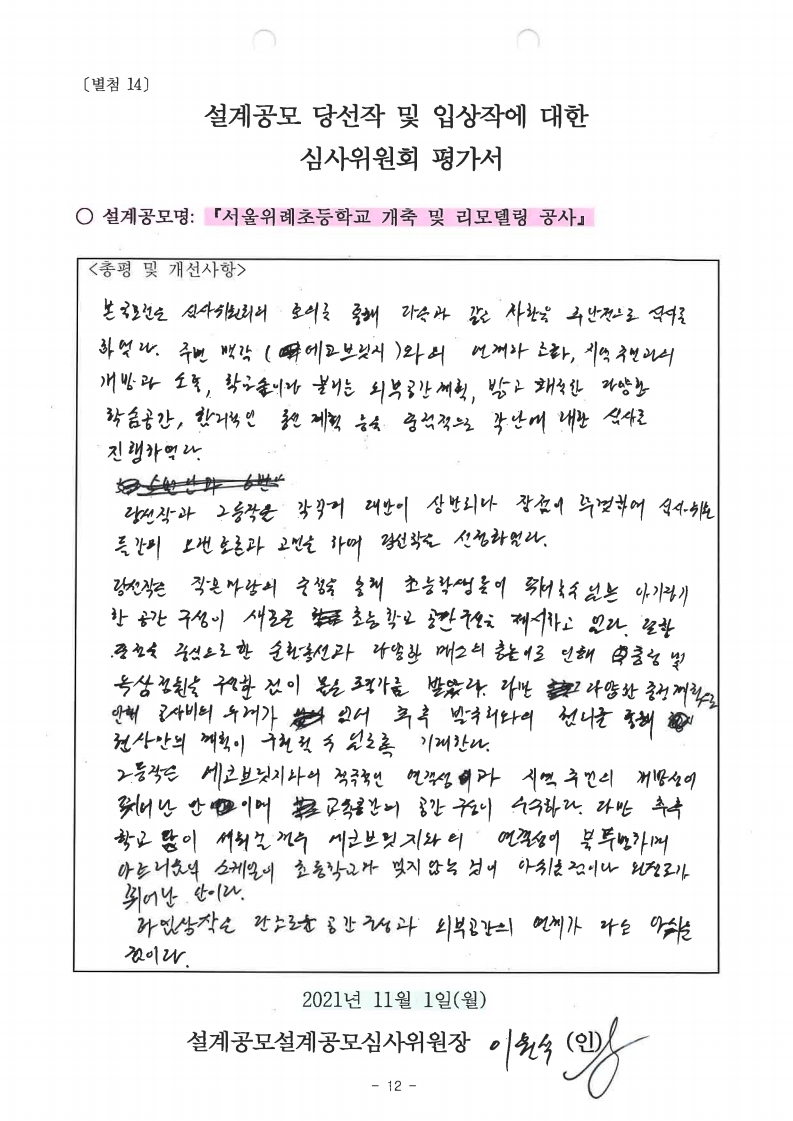 〔별첨 14〕
설계공모 당선작 및 입상작에 대한
심사위원회 평가서
○ 설계공모명: 『서울위례초등학교 개축 및 리모델링 공사』
<총평 및 개선사항>
본 공모전은 심사위원회의 토의를 통해 다음과 같은 사항을 주안점으로 심사를
하였다. 주변 맥락 (에코브릿지)와의 연계와 조화, 지역 주민과의
개방과 소통, 학교숲이라 불리는 외부공간 계획, 밝고 쾌적한 다양한
학습공간, 합리적인 동선 계획 등을 중점적으로 각 안에 대한 심사를
진행하였다.
당선작과 2등작은 각각의 대안이 상반되나 장점이 뚜렷하여 심사위원
들간의 오랜 토론과 고민을 하며 당선작을 선정하였다.
당선작은 작은 마당의 중정을 통해 초등학생들이 아기자기
한 공간 구성이 새로운 초등학교 공간구성을 제시하고 있다. 또한
중정을 중심으로 한 순환동선과 다양한 매스의 높낮이로 인해 중정 및
옥상정원을 구성한 것이 높은 평가를 받았다. 다만 다양한 중정 계획으로
인해 공사비의 우려가 있어 추후 발주처와의 협의를 통해
현상안의 계획이 구현될 수 있도록 기대한다.
2등작은 에코브릿지와의 적극적인 연결성과 지역 주민의 개방성이
뛰어난 안이며 교육공간의 공간 구성이 우수하다. 다만 추후
학교 담이 세워질 경우 에코브릿지와의 연결성이 불투명하며
스케일이 초등학교와 맞지 않는 것이 아쉬운 점이나 완성도가
뛰어난 안이다.
타 입상작은 단조로운 공간구성과 외부공간의 연계가 다소 아쉬운
점이다.
2021년 11월 1일(월)
설계공모설계공모심사위원장 (인)
- 12 -